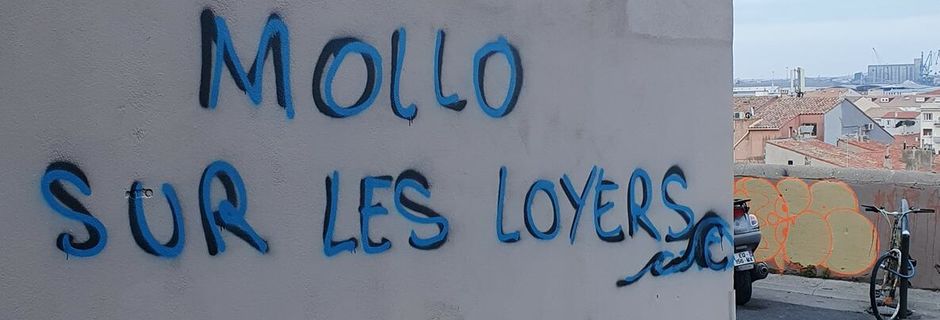 MOLLO
SUR LES LOYERS